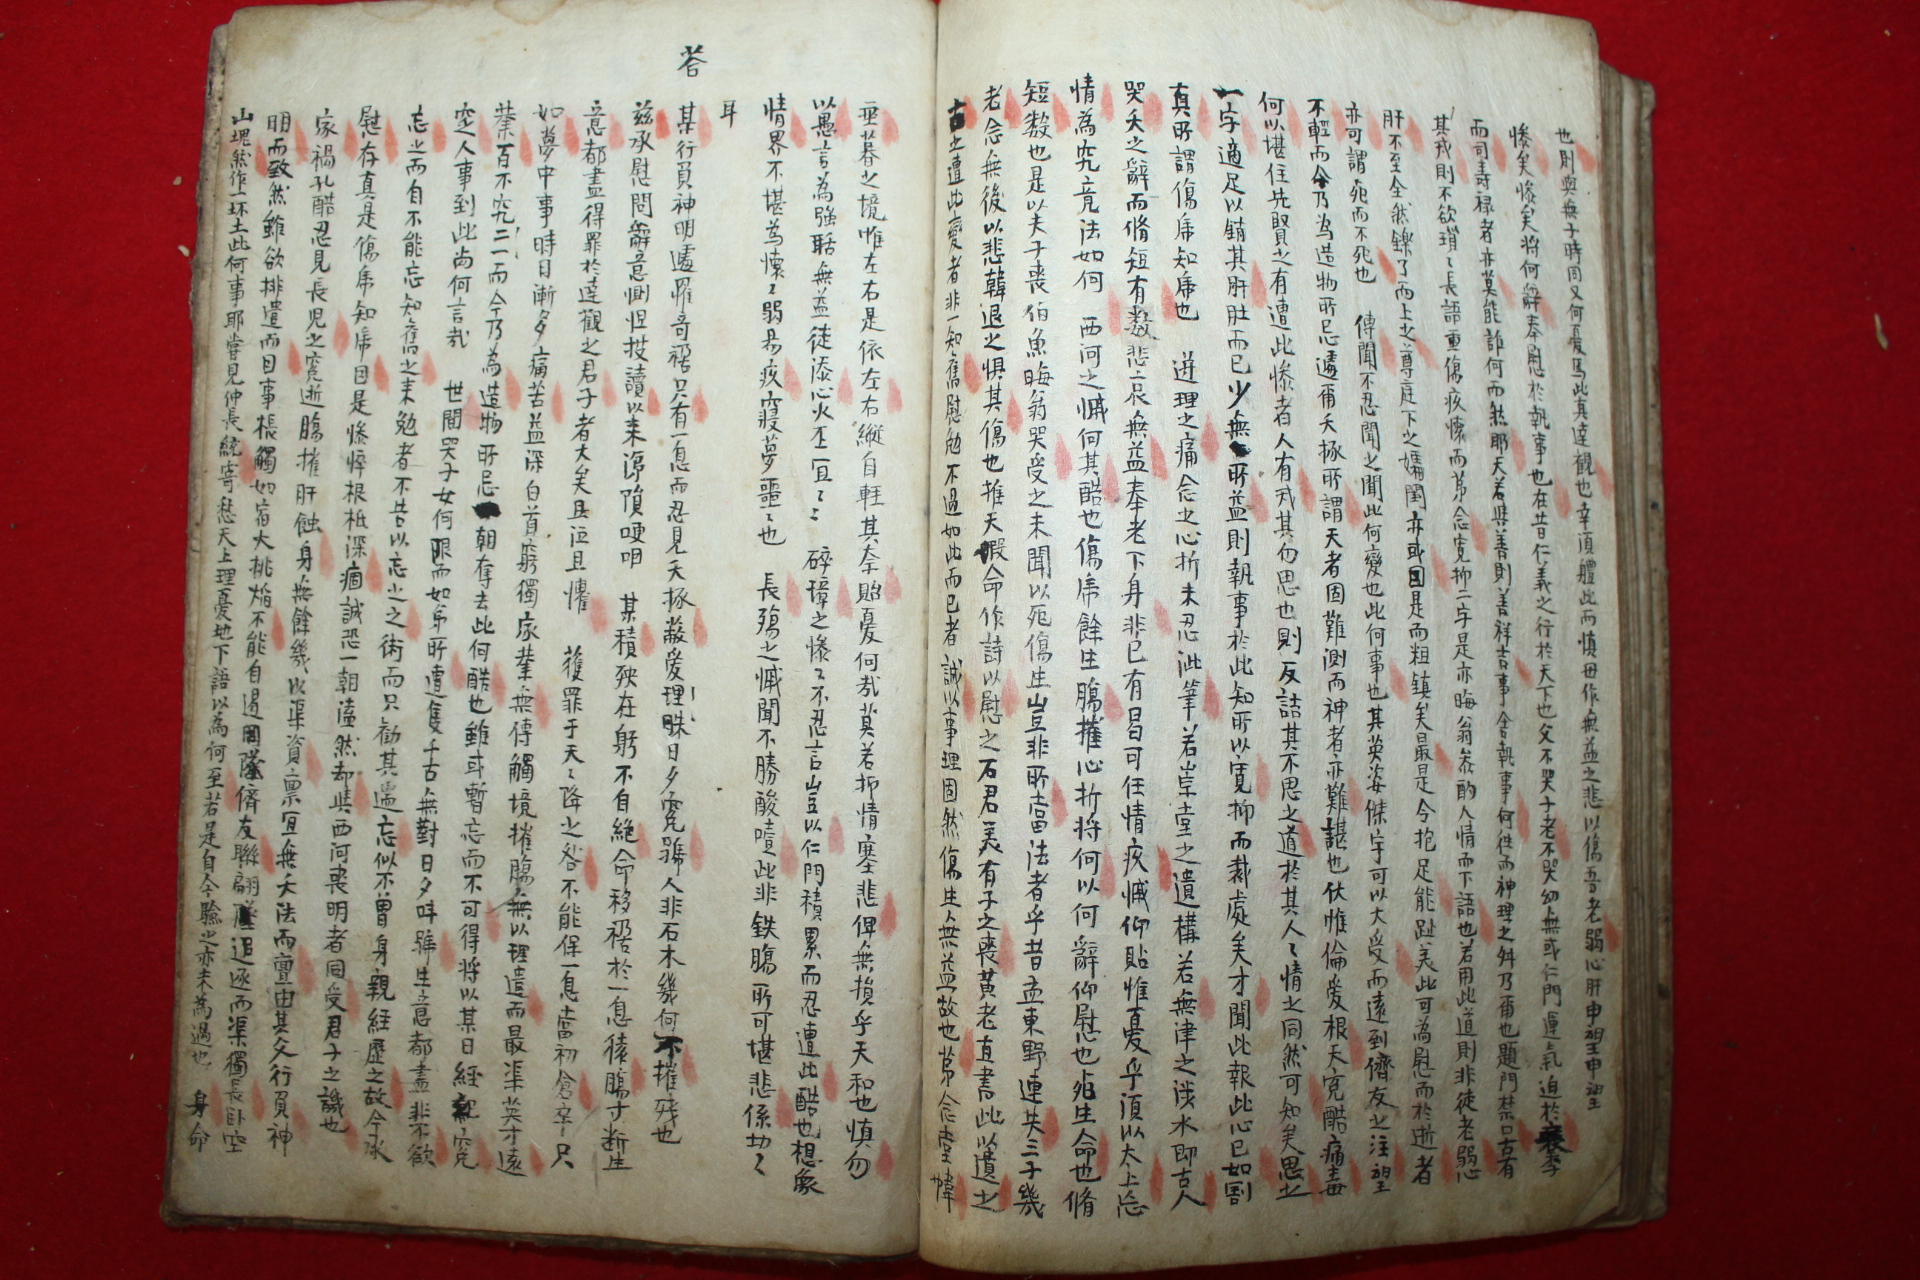 也則與無子時同又何憂焉此真達觀也幸須體此而慎毋作無益之悲以傷吾老弱心肝申望申望
慘矣慘矣將何辭奉慰於執事也在昔仁義之行於天下也父不哭子老不哭幼無或仁門運氣迫於
而司壽祿者亦莫能誰何而然耶天若與善則善祥吉事舍執事何往而神理之舛乃爾也題門禁口古有
其戒則不欲瑣〻長語重傷疚懷而第念寬抑二字是亦晦翁答酌人情而下語也若用此道則非徒老弱心
肝不至全然鑠了而上之尊庭下之孀閨亦或因是而粗鎮矣最是今抱足能趾美此可為慰而於逝者
亦可謂死而不死也 傳聞不忍聞之聞此何變也此何事也其英姿傑宇可以大受而遠到儕友之注望
不輕而今乃為造物所忌遽爾夭椓所謂天者固難測而神者亦難諶也伏惟倫愛根天冤酷痛毒
何以堪住先賢之有遭此慘者人有戒其勿思也則反詰其不思之道於其人〻情之同然可知矣思之
一字適足以銷其肝肚而已少無所益則執事於此知所以寬抑而裁處矣才聞此報此心已如割
真所謂傷虎知虎也 逆理之痛念之心折未忍泚筆若崇堂之遺構若無津之涉水即古人
哭夭之辭而脩短有數悲哀無益奉老下身非已有曷可任情疚慽仰貽惟憂乎須以太上忘
情為究竟法如何 西河之慽何其酷也傷虎餘生腸摧心折將何以何辭仰慰也死生命也脩
短數也是以夫子喪伯魚晦翁哭受之未聞以死傷生豈非所當法者乎昔孟東野連失三子幾
老念無後以悲韓退之懼其傷也推天假命作詩以慰之石君美有子之喪黃老直書此以遺之
古之遭此變者非一知舊慰勉不過如此而已者誠以事理固然傷生無益故也第念堂幃
垂暮之境惟左右是依左右縱自輕其奈貽憂何哉莫若抑情塞悲俾無損乎天和也慎勿
以愚言為強聒無益徒添心火丕宜〻 碎璋之慘〻不忍言豈以仁門積累而忍遭此酷也想象
情界不堪為懷〻弱易疚寢夢噩〻也 長殤之慽聞不勝酸噎此非鉄腸所可堪悲係切〻
耳
答
某行負神明遽罹奇禍只有一息而忍見夭椓蔽愛理昧日夕冤號人非石木幾何不摧殘也
玆承慰問辭意惻怛披讀以來涕隕哽咽 某積殃在躬不自絕命移禍於一息猿腸寸斷生
意都盡得罪於達觀之君子者大矣且洹且懼 獲罪于天〻降之咎不能保一息當初倉卒只
如夢中事時日漸多痛苦益深白首窮獨家業無傳觸境摧腸無以理遣而最渠英才遠
業百不究二一而今乃為造物所忌 朝奪去此何酷也雖或暫忘而不可得將以某日經紀窆
空人事到此尚何言哉 世間哭子女何限而如弟所遭隻千古無對日夕呼號生意都盡非不欲
忘之而自不能忘知舊之来勉者不告以忘之之術而只勸其遄忘似不曾身親經歷之故今承
慰存真是傷虎知虎因是慘悴根柢深痼誠恐一朝溘然却與西河喪明者同受君子之譏也
家禍孔酷忍見長児之冤逝腸摧肝蝕身無餘幾以渠資禀冝無夭法而亶由其父行負神
明而致然雖欲排遣而因事棖觸如宿火挑焰不能自遏儕友聯翩 追逐而渠獨長卧空
山塊然作一坏土此何事耶嘗見仲長統寄愁天上理憂地下語以為何至若是自今驗之亦未為過也 身命